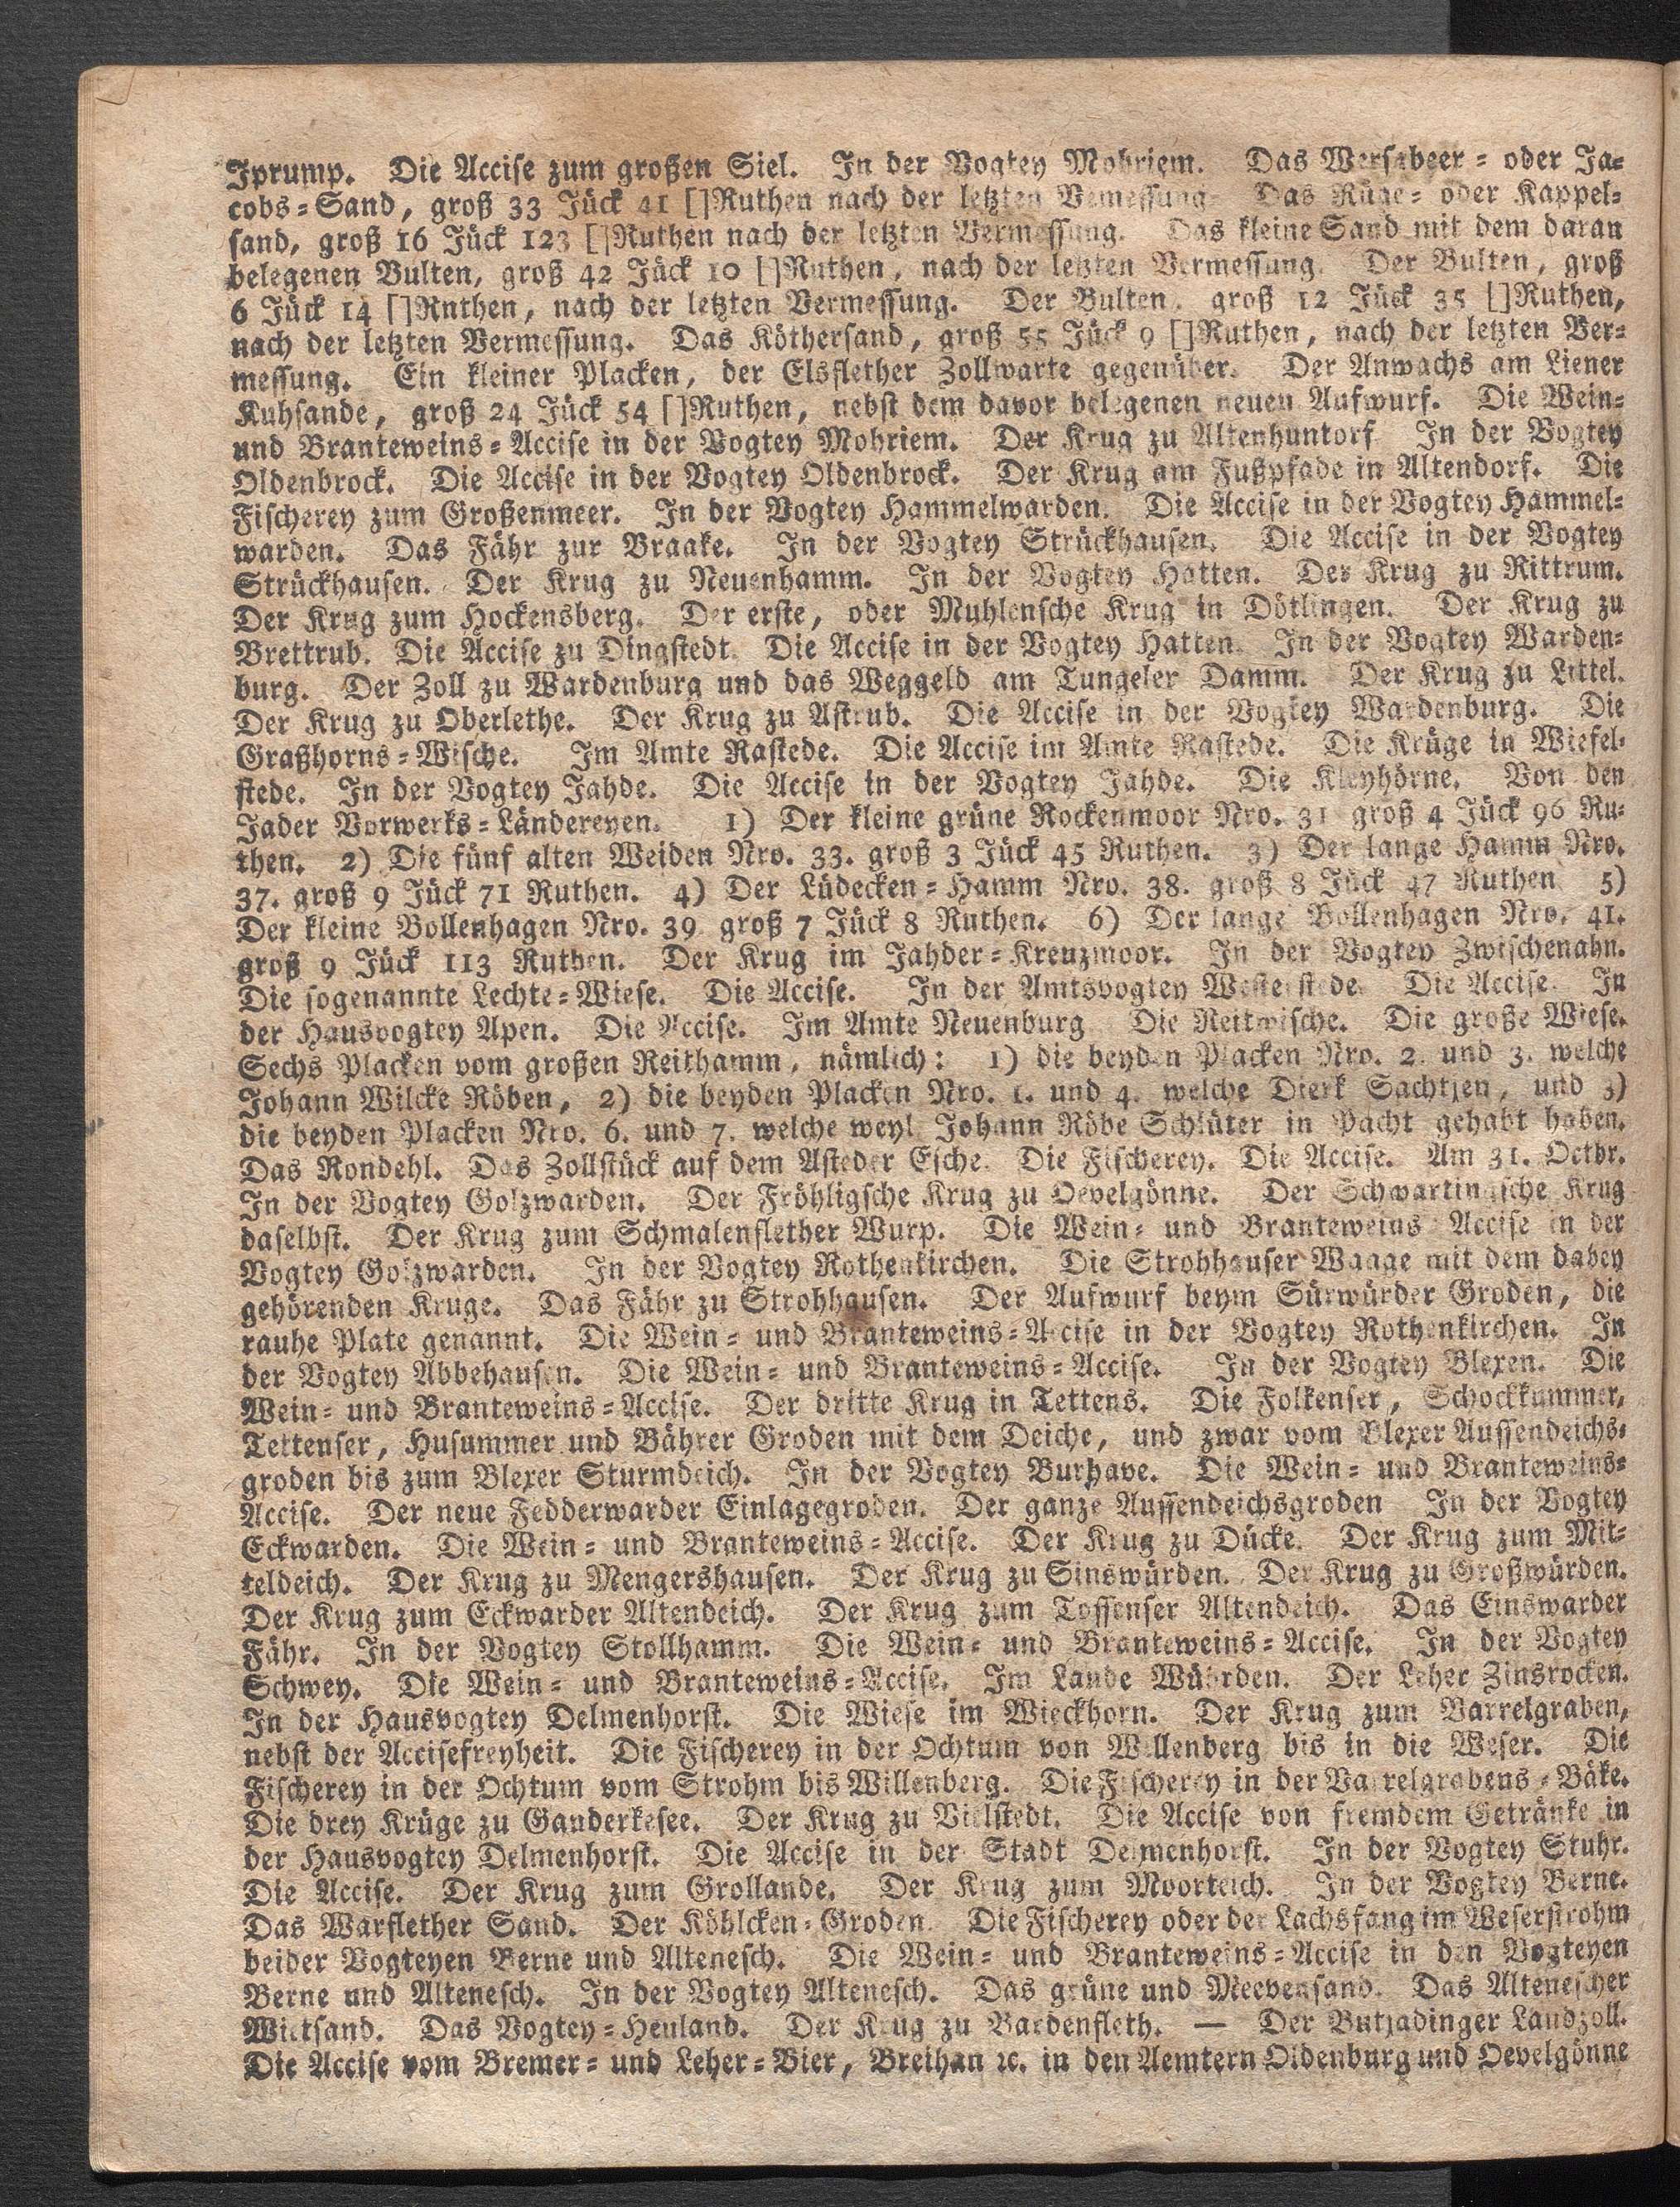 Iprump. Die Accise zum großen Siel. In der Vogtey Mohriem. Das Wersabeer= oder Ja=
cobs=Sand, groß 33 Jück 41 []Ruthen nach der letzten Vemessung. Das Rüge= oder Kappel=
sand, groß 16 Jück 123 []Ruthen nach der letzten Vermessung. Das kleine Sand mit dem daran
belegenen Bulten, groß 42 Jück 10 []Ruthen, nach der letzten Vermessung. Der Bulten, groß
6 Jück 14 []Rnthen, nach der letzten Vermessung. Der Bulten, groß 12 Jück 35 []Ruthen,
nach der letzten Vermessung. Das Köthersand, groß 55 Jück 9 []Ruthen, nach der letzten Ver=
messung. Ein kleiner Placken, der Elsflether Zollwarte gegenüber. Der Anwachs am Liener
Kuhsande, groß 24 Jück 54 []Ruthen, nebst dem davor belegenen neuen Aufwurf. Die Wein=
und Branteweins=Accise in der Vogtey Mohriem. Der Krug zu Altenhuntorf In der Vogtey
Oldenbrock. Die Accise in der Vogtey Oldenbrock. Der Krug am Fußpfade in Altendorf. Die
Fischerey zum Großenmeer. In der Vogtey Hammelwarden. Die Accise in der Vogtey Hammel=
warden. Das Fähr zur Braake. In der Vogtey Strückhausen. Die Accise in der Vogtey
Strückhausen. Der Krug zu Neuenhamm. In der Vogtey Hatten. Der Krug zu Rittrum.
Der Krug zum Hockensberg. Der erste, oder Muhlensche Krug in Dötlingen. Der Krug zu
Brettrub. Die Accise zu Dingstedt. Die Accise in der Vogtey Hatten. In der Vogtey Warden=
burg. Der Zoll zu Wardenburg und das Weggeld am Tungeler Damm. Der Krug zu Littel.
Der Krug zu Oberlethe. Der Krug zu Astrub. Die Accise in der Vogtey Wardenburg. Die
Graßhorns=Wische. Im Amte Rastede. Die Accise im Amte Rastede. Die Krüge in Wiefel=
stede. In der Vogtey Jahde. Die Accise in der Vogtey Jahde. Die Kleyhörne. Von den
Jader Vorwerks=Ländereyen. 1) Der kleine grüne Rockenmoor Nro. 31 groß 4 Jück 96 Ru=
then. 2) Die fünf alten Weiden Nro. 33. groß 3 Jück 45 Ruthen. 3) Der lange Hamm Nro.
37. groß 9 Jück 71 Ruthen. 4) Der Lüdecken=Hamm Nro. 38. groß 8 Jück 47 Ruthen 5)
Der kleine Bollenhagen Nro. 39 groß 7 Jück 8 Ruthen. 6) Der lange Bollenhagen Nro. 41.
groß 9 Jück 113 Ruthen. Der Krug im Jahder=Kreuzmoor. In der Vogtey Zwischenahn.
Die sogenannte Lechte=Wiese. Die Accise. In der Amtsvogtey Westerstede. Die Accise. In
der Hausvogtey Apen. Die Accise. Im Amte Neuenburg Die Reitwische. Die große Wiese.
Sechs Placken vom großen Reithamm, nämlich: 1) die beyden Placken Nro. 2. und 3. welche
Johann Wilcke Röben, 2) die beyden Placken Nro. 1. und 4. welche Dierk Sachtjen, und 3)
die beyden Placken Nro. 6. und 7. welche weyl. Johann Röbe Schlüter in Pacht gehabt haben.
Das Rondehl. Das Zollstück auf dem Asteder Esche. Die Fischerey. Die Accise. Am 31. Octbr.
In der Vogtey Golzwarden. Der Fröhligsche Krug zu Oevelgönne. Der Schwartingsche Krug
daselbst. Der Krug zum Schmalenflether Wurp. Die Wein= und Branteweins Accise in der
Vogtey Golzwarden. In der Vogtey Rothenkirchen. Die Strohhauser Waage mit dem dabey
gehörenden Kruge. Das Fähr zu Strohhausen. Der Aufwurf beym Sürwürder Groden, die
rauhe Plate genannt. Die Wein= und Branteweins=Accise in der Vogtey Rothenkirchen. In
der Vogtey Abbehausen. Die Wein= und Branteweins=Accise. In der Vogtey Blexen. Die
Wein= und Branteweins=Accise. Der dritte Krug in Tettens. Die Folkenser, Schockkummer,
Tettenser, Husummer und Bährer Groden mit dem Deiche, und zwar vom Blexer Aussendeichs=
groden bis zum Blexer Sturmdeich. In der Vogtey Burhave. Die Wein= und Branteweins=
Accise. Der neue Fedderwarder Einlagegroden. Der ganze Aussendeichsgroden In der Vogtey
Eckwarden. Die Wein= und Branteweins=Accise. Der Krug zu Dücke. Der Krug zum Mit=
teldeich. Der Krug zu Mengershausen. Der Krug zu Sinswürden. Der Krug zu Großwürden.
Der Krug zum Eckwarder Altendeich. Der Krug zum Tossenser Altendeich. Das Einswarder
Fähr. In der Vogtey Stollhamm. Die Wein= und Branteweins=Accise. In der Vogtey
Schwey. Die Wein= und Branteweins=Accise. Im Lande Wührden. Der Leher Zinsrocken.
In der Hausvogtey Delmenhorst. Die Wiese im Wieckhorn. Der Krug zum Varrelgraben,
nebst der Accisefreyheit. Die Fischerey in der Ochtum von Willenberg bis in die Weser. Die
Fischerey in der Ochtum vom Strohm bis Willenberg. Die Fischerey in der Varrelgrabens=Bäke.
Die drey Krüge zu Ganderkesee. Der Krug zu Vielstedt. Die Accise von fremdem Getränke in
der Hausvogtey Delmenhorst. Die Accise in der Stadt Delmenhorst. In der Vogtey Stuhr.
Die Accise. Der Krug zum Grollande. Der Krug zum Moorteich. In der Vogtey Berne.
Das Warflether Sand. Der Köhlcken=Groden. Die Fischerey oder der Lachsfang im Weserstrohm
beider Vogteyen Berne und Altenesch. Die Wein= und Branteweins=Accise in den Vogteyen
Berne und Altenesch. In der Vogtey Altenesch. Das grüne und Meevensand. Das Altenescher
Wietsand. Das Vogtey=Heuland. Der Krug zu Bardenfleth. — Der Butjadinger Landzoll.
Die Accise vom Bremer= und Leher=Bier, Breihan ꝛc. in den Aemtern Oldenburg und Oevelgönne